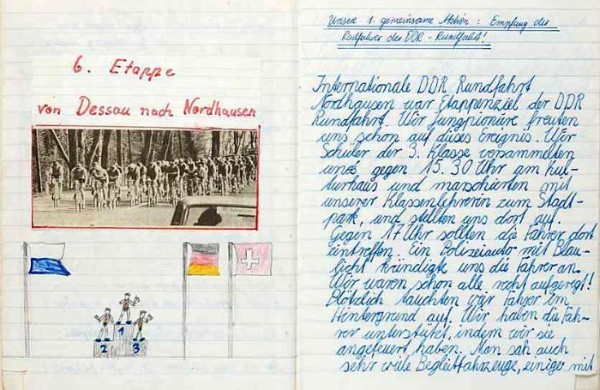 6. Etappe
von Dessau nach Nordhausen
2 1 3
Unsere 1. gemeinsame Aktion: Empfang der
Radfahrer der DDR-Rundfahrt!
Internationale DDR Rundfahrt
Nordhausen war Etappenziel der DDR
Rundfahrt. Wir Jungpioniere freuten
uns schon auf dises Ereignis. Wir
Schüler der 3. Klasse versammelten
uns gegen 15.30 Uhr am Kul-
turhaus und marschierten mit
unserer Klassenlehrerin zum Stadt-
park, und stellten uns dort auf.
Gegen 17 Uhr sollten die Fahrer dort
eintreffen. Ein Polizeiauto mit Blau-
licht kündigte uns die Fahrer an.
Wir waren schon alle recht aufgeregt!
Plötzlich tauchten vier Fahrer im
Hintergrund auf. Wir haben die Fah-
rer unterstützt, indem wir sie
angefeuert haben. Man sah auch
sehr viele Begleitfahrzeuge, einige mit